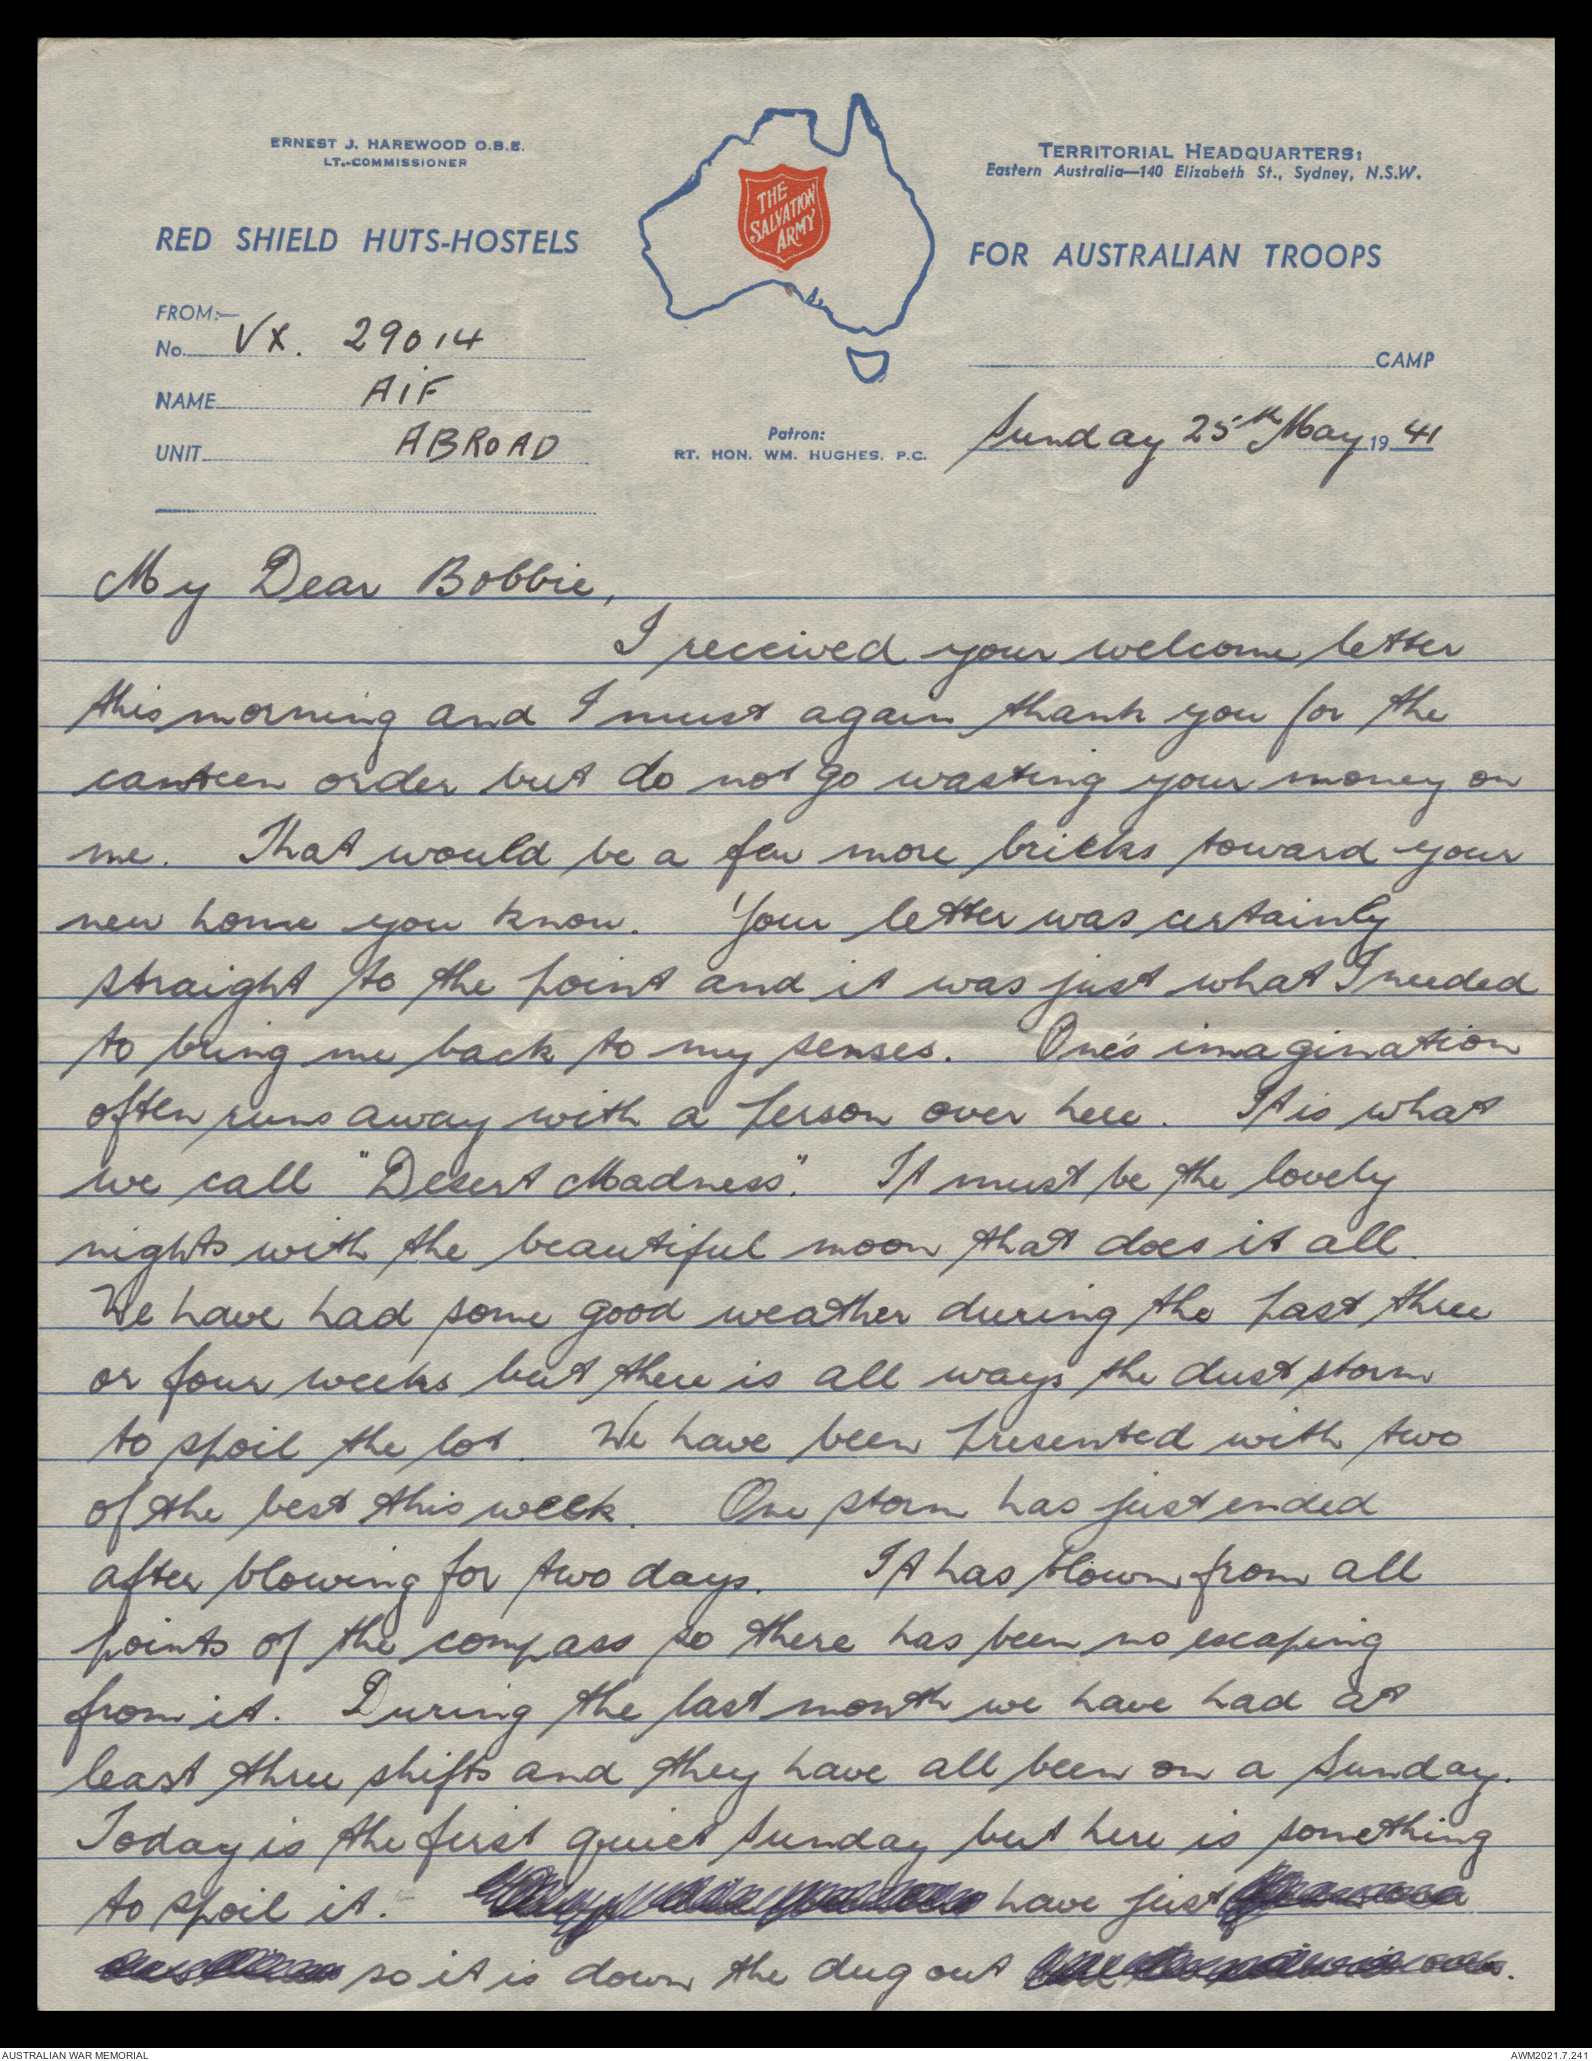 ERNEST J. HAREWOOD O.B.E.
LT.-COMMISSIONER
TERRITORIAL HEADQUARTERS:
Eastern Australia—140 Elizabeth St., Sydney, N.S.W.
THE
SALVATION
ARMY
RED SHIELD HUTS-HOSTELS
FOR AUSTRALIAN TROOPS
FROM:—
No. VX. 29014
CAMP
NAME AIF
UNIT ABROAD
Patron:
RT. HON. WM. HUGHES. P.C.
Sunday 25th May 1941
My Dear Bobbie,
I received your welcome letter
this morning and I must again thank you for the
canteen order but do not go wasting your money on
me. That would be a few more bricks toward your
new home you know. Your letter was certainly
straight to the point and it was just what I needed
to bring me back to my senses. One's imagination
often runs away with a person over here. It is what
we call "Desert Madness". It must be the lovely
nights with the beautiful moon that does it all.
We have had some good weather during the past three
or four weeks but there is all ways the dust storm
to spoil the lot. We have been presented with two
of the best this week. One storm has just ended
after blowing for two days. It has blown from all
points of the compass so there has been no escaping
from it. During the last month we have had at
least three shifts and they have all been on a Sunday.
Today is the first quiet Sunday but here is something
to spoil it. have just
so it is down the dug out
AUSTRALIAN WAR MEMORIAL
AWM2021.7.241